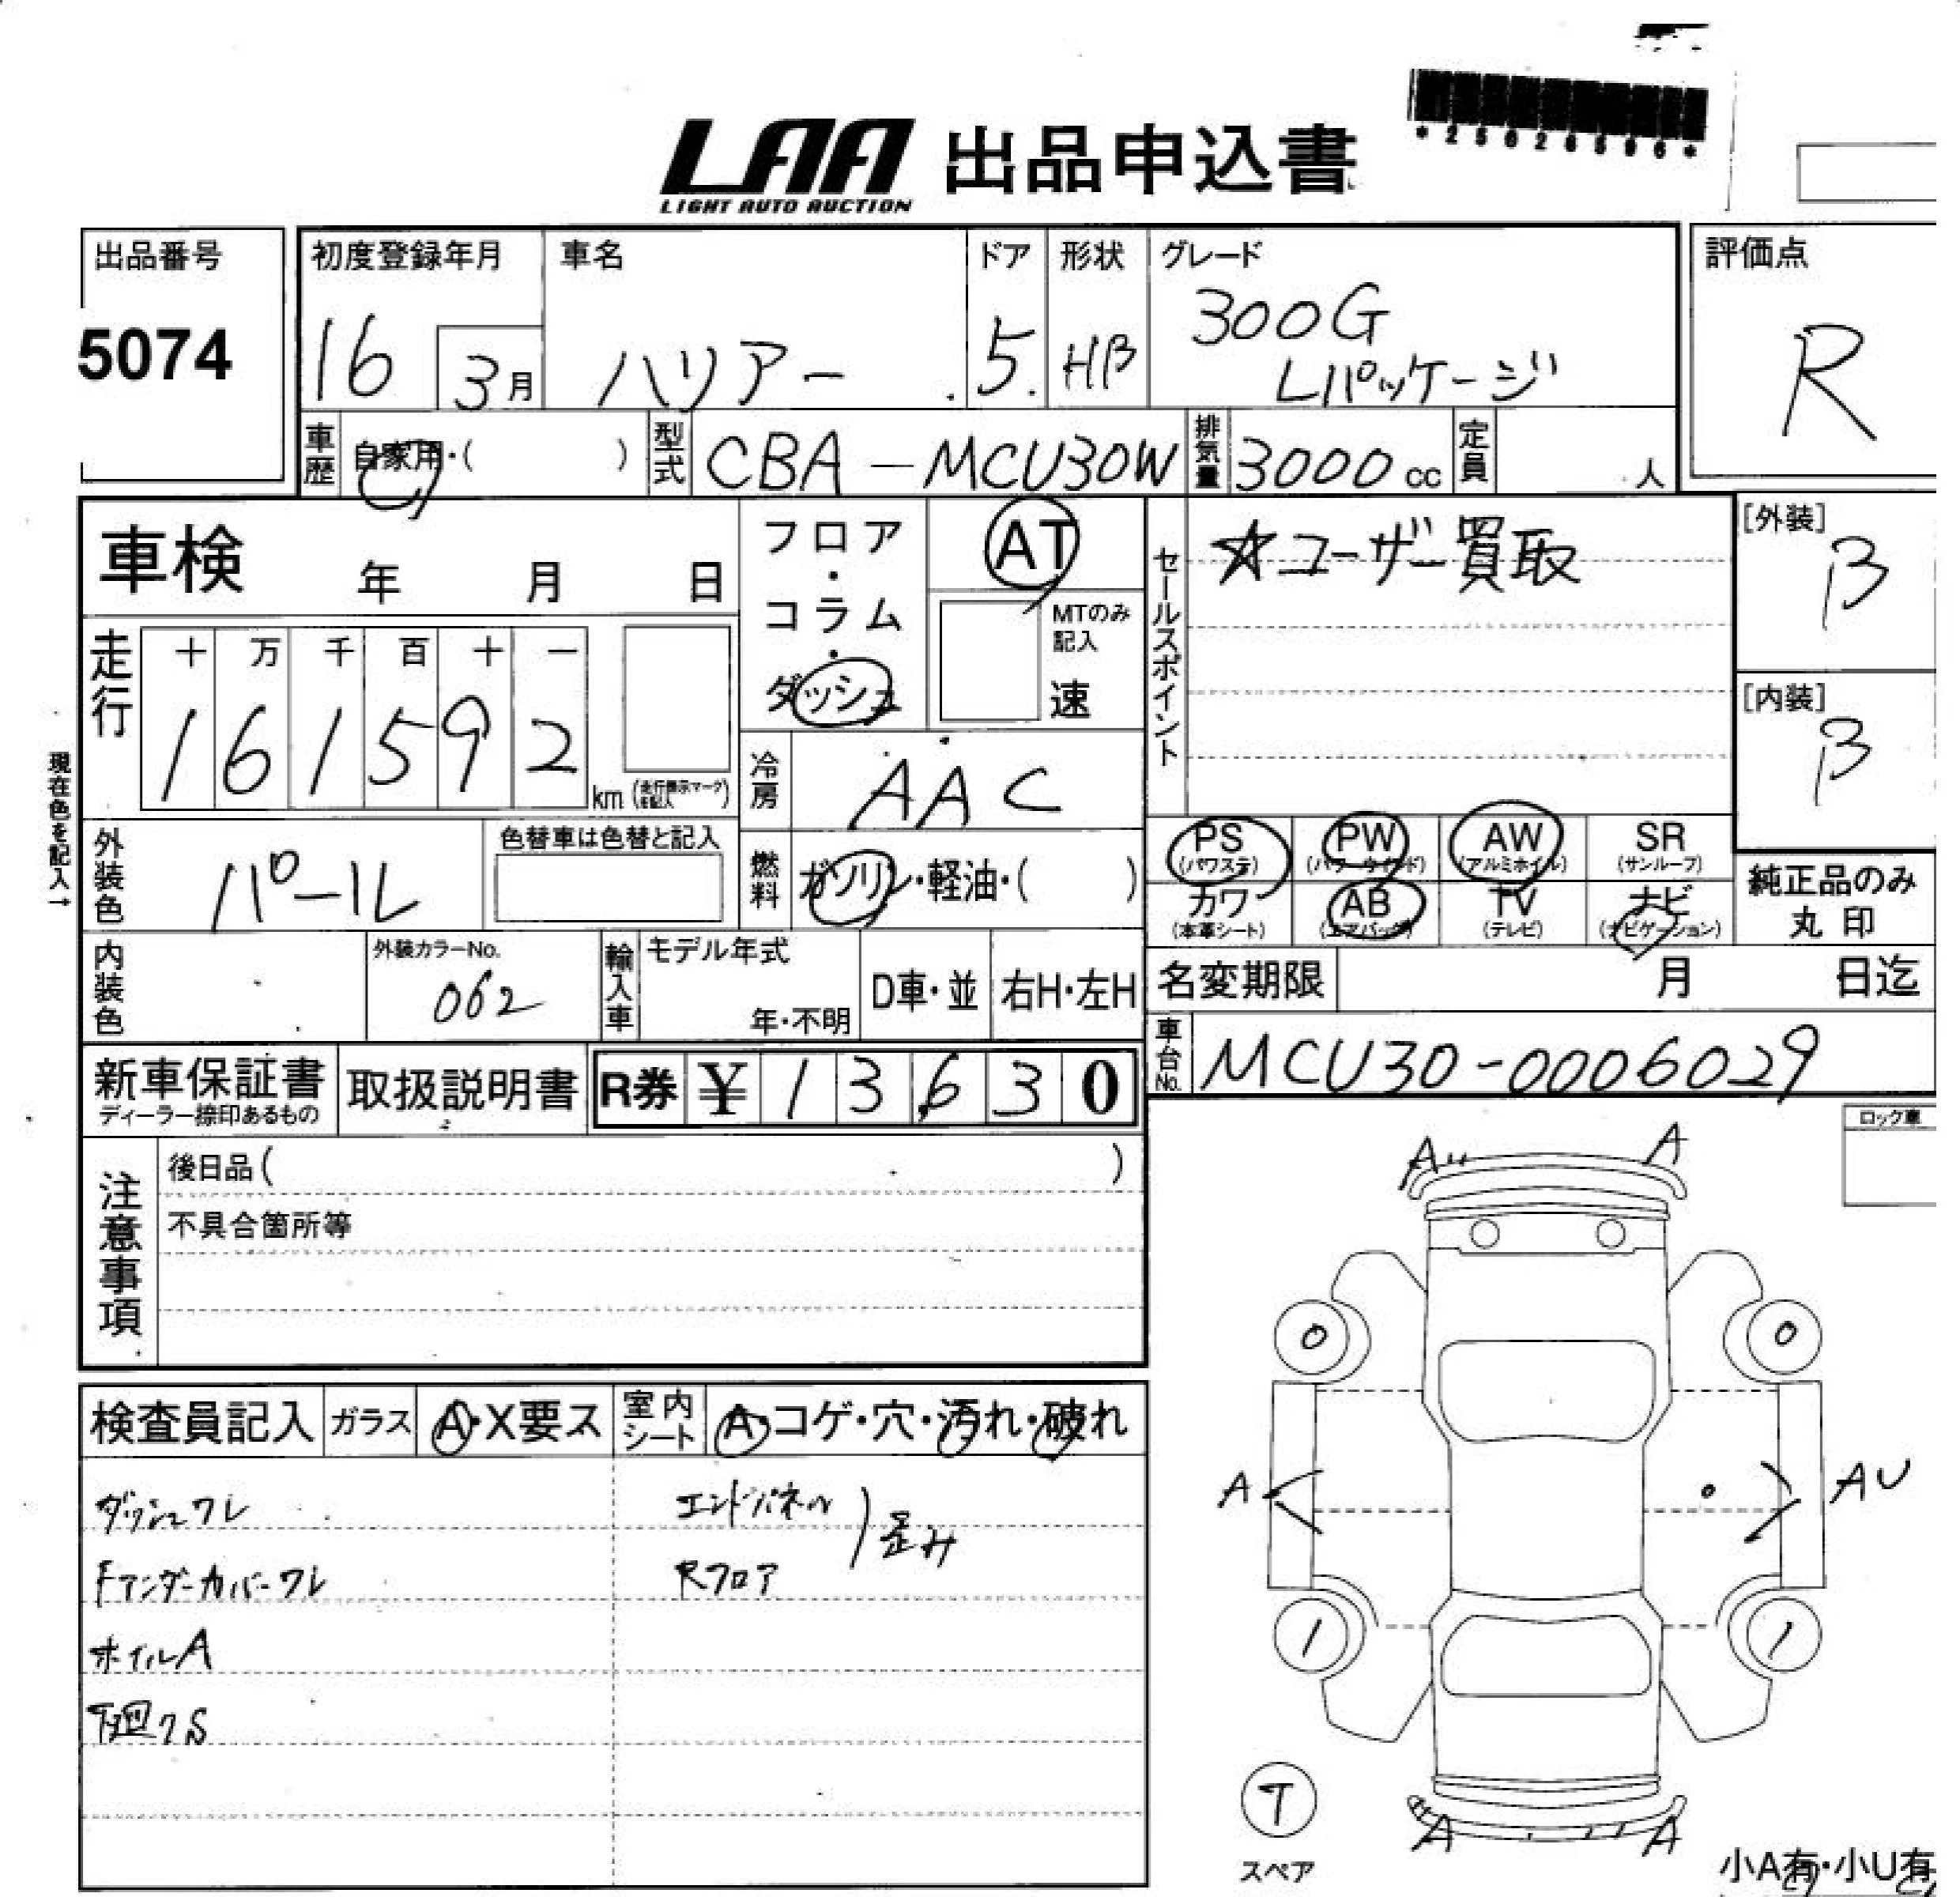 LAA 出品申込書
LIGHT AUTO AUCTION
*25026596*
出品番号
5074
初度登録年月
16 3月
車名
ハリアー
ドア
5
形状
HB
グレード
300G
Lパッケージ
評価点
R
車歴 自家用・( )
型式 CBA-MCU30W
排気量 3000cc
定員 人
車検 年 月 日
フロア
・
コラム
・
ダッシュ
AT
MTのみ
記入
速
セールスポイント
☆ユーザー買取
[外装]
B
[内装]
B
走行
十 万 千 百 十 一
1 6 1 5 9 2 km
現在色を記入→
冷房 AAC
外装色 パール
色替車は色替と記入
燃料 ガソリン・軽油・( )
PS
(パワステ)
PW
(パワーウインド)
AW
(アルミホイル)
SR
(サンルーフ)
カワ
(本革シート)
AB
(エアバッグ)
TV
(テレビ)
ナビ
(ナビゲーション)
純正品のみ
丸印
内装色
外装カラーNo.
062
輸入車
モデル年式
年・不明
D車・並
右H・左H
名変期限 月 日迄
車台No. MCU30-0006029
新車保証書
ディーラー捺印あるもの
取扱説明書
R券 ¥ 1 3 6 3 0
ロック車
注意事項
後日品( )
不具合箇所等
A A
0 0
A AU
1 1
検査員記入 ガラス A・X要ス
室内シート A・コゲ・穴・汚れ・破れ
ダッシュワレ
Fアンダーカバーワレ
ホイルA
下廻りS
エンドパネル
Rフロア
歪み
T
スペア
A A
小A有・小U有